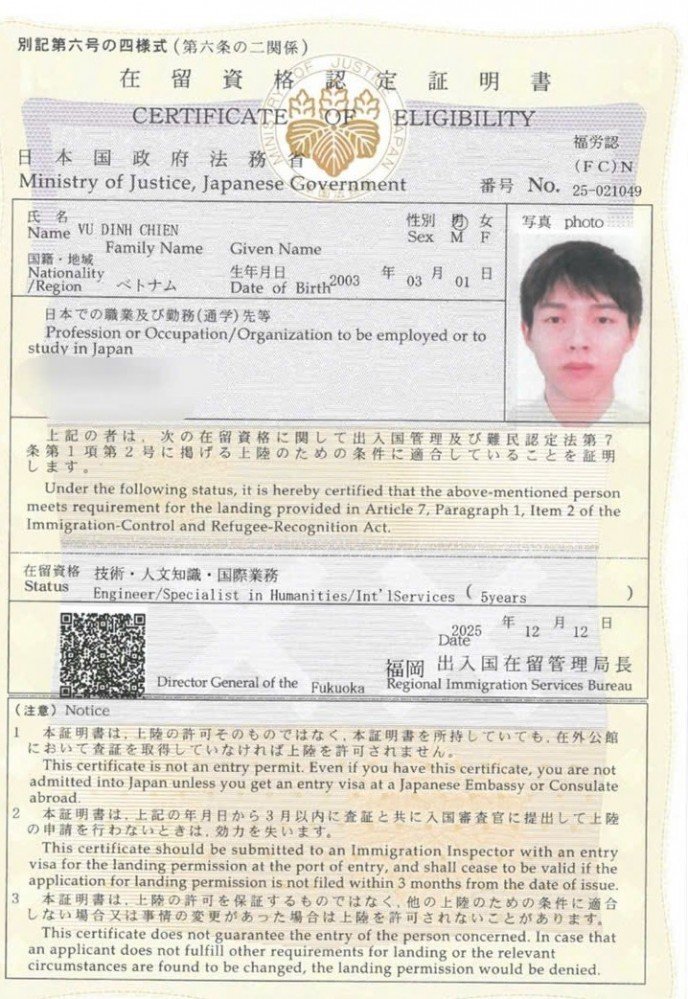 別記第六号の四様式(第六条の二関係)
在留資格認定証明書
CERTIFICATE OF ELIGIBILITY
日本国政府法務省
Ministry of Justice, Japanese Government
福労認
(FC)N
番号 No. 25-021049
氏名
Name VU DINH CHIEN
Family Name Given Name
性別 男 女
Sex M F
写真 photo
国籍・地域
Nationality
/Region ベトナム
生年月日
Date of Birth 2003 年 03 月 01 日
日本での職業及び勤務(通学)先等
Profession or Occupation/Organization to be employed or to
study in Japan
上記の者は, 次の在留資格に関して出入国管理及び難民認定法第7
条第1項第2号に掲げる上陸のための条件に適合していることを証明
します。
Under the following status, it is hereby certified that the above-mentioned person
meets requirement for the landing provided in Article 7, Paragraph 1, Item 2 of the
Immigration-Control and Refugee-Recognition Act.
在留資格 技術・人文知識・国際業務
Status Engineer/Specialist in Humanities/Int'lServices ( 5years )
2025 年 12 月 12 日
Date
福岡 出入国在留管理局長
Director General of the Fukuoka Regional Immigration Services Bureau
(注意) Notice
1 本証明書は, 上陸の許可そのものではなく, 本証明書を所持していても, 在外公館
において査証を取得していなければ上陸を許可されません。
This certificate is not an entry permit. Even if you have this certificate, you are not
admitted into Japan unless you get an entry visa at a Japanese Embassy or Consulate
abroad.
2 本証明書は, 上記の年月日から3月以内に査証と共に入国審査官に提出して上陸
の申請を行わないときは, 効力を失います。
This certificate should be submitted to an Immigration Inspector with an entry
visa for the landing permission at the port of entry, and shall cease to be valid if the
application for landing permission is not filed within 3 months from the date of issue.
3 本証明書は, 上陸の許可を保証するものではなく, 他の上陸のための条件に適合
しない場合又は事情の変更があった場合は上陸を許可されないことがあります。
This certificate does not guarantee the entry of the person concerned. In case that
an applicant does not fulfill other requirements for landing or the relevant
circumstances are found to be changed, the landing permission would be denied.